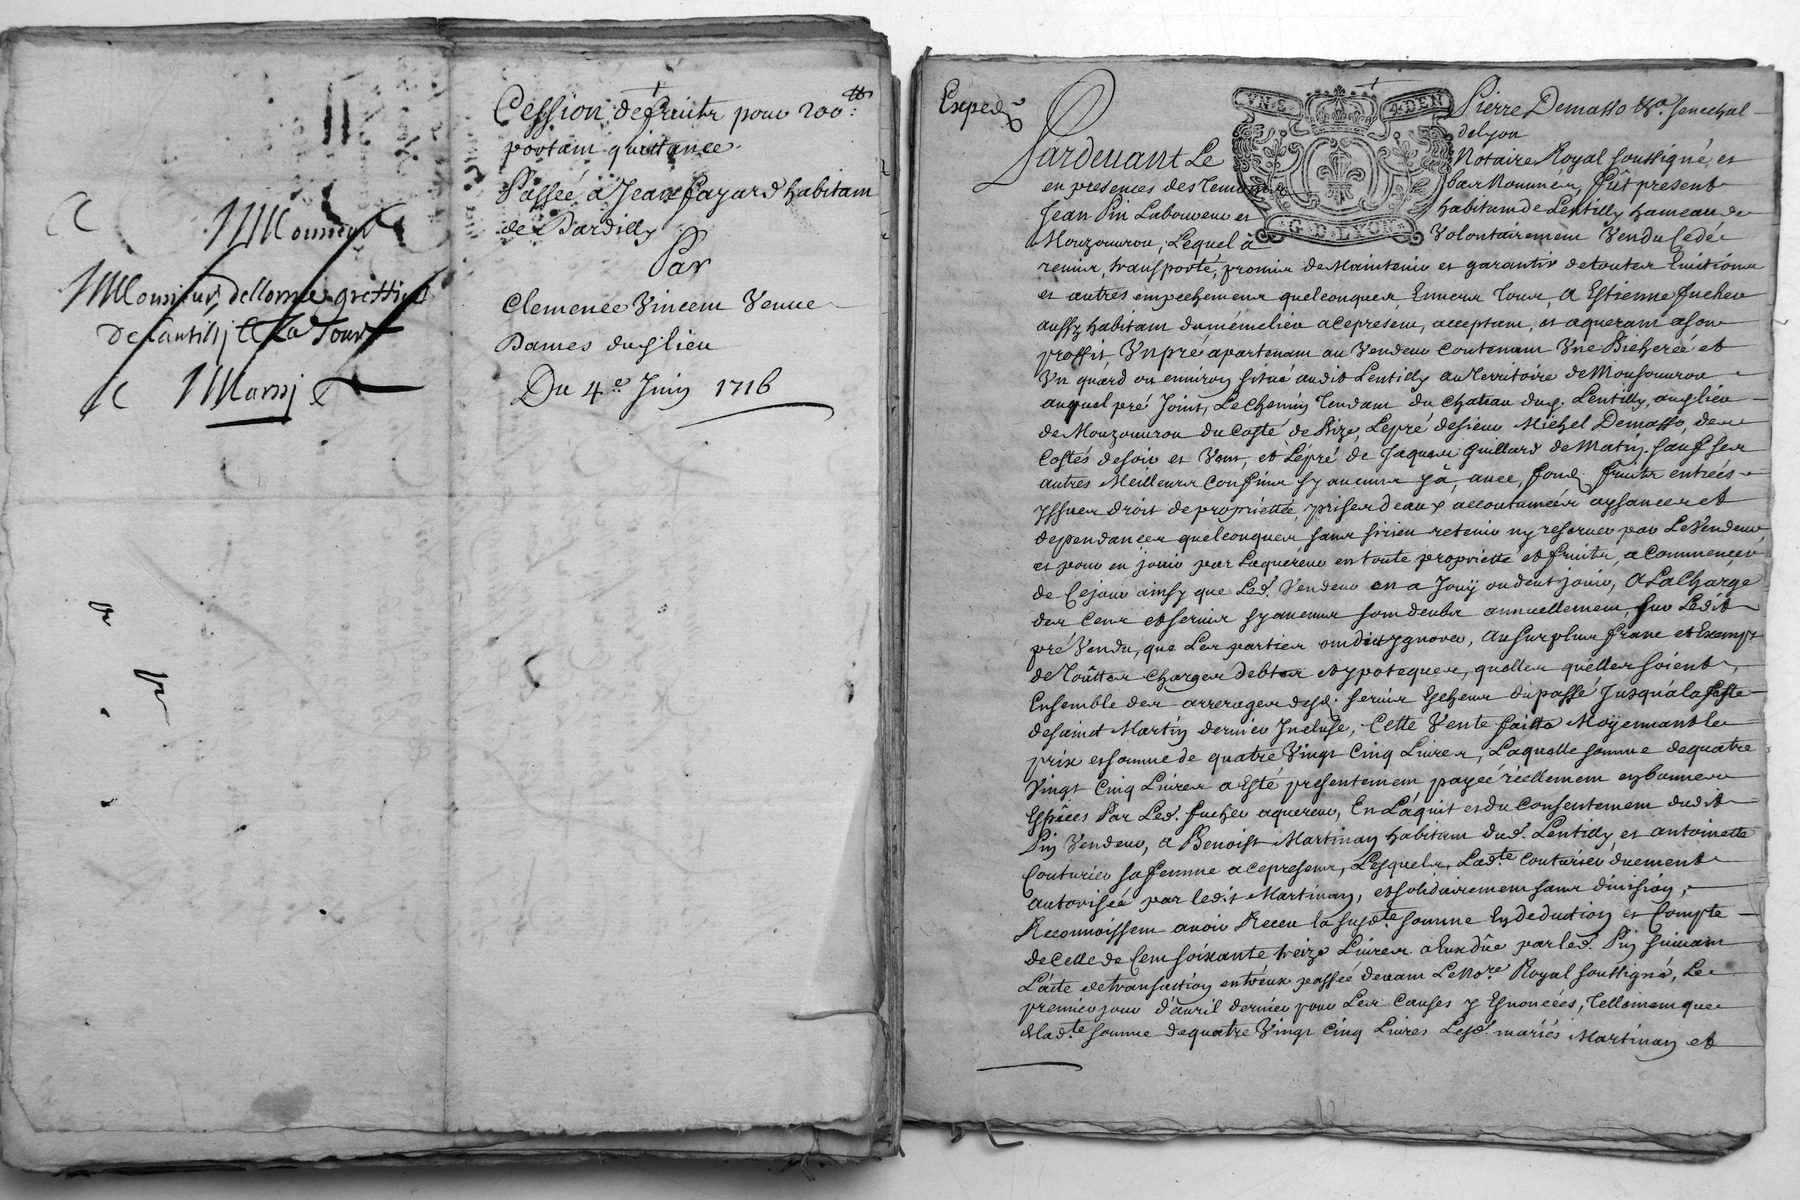 Cession de fruitz pour 200 tt
portant quittance
Passée a Jean Fayard habitant
de Dardilly
Par
Clemence Vincent Veuve
Dames dud. lieu
Du 4e. Juin 1716
A
Monsieur
Monsieur dellorme greffier
De Lantilj & La Tour
A Marsj
Exped.
UN S. 4 DEN
G. D. LYON
Pierre Demasso &a. Senechal
de Lyon
Pardevant Le Notaire Royal soussigné, et
en presences des temoins bas Nommés, fût present
Jean Pin Laboureur et habitant de Lentilly hameau de
Mouzouvrou, Lequel à Volontairement Vendu Cedé
remis, transporté, promis de Maintenir et garantir de toutes Evictions
et autres empechemens quelconques Envers Tous, A Estienne fucher
aussy habitant du même lieu a Ce présent, acceptant, et aquerant a son
proffit Vn pré apartenant au Vendeur Contenant Vne Bicherée et
Vn quârd ou environ situé audit Lentilly au Territoire de Mousouvrou
auquel pré Joint, Le Chemin Tendant du Chateau dud. Lentilly, aud. lieu
de Mouzouvrou du Costé de Bize, Le pré de sieur Michel Demasso, des
Costés de soir et Vent, et Le pré de Jaques guillard de Matin. sauf ses
autres Meilleurs Confins sy aucuns y à, avec, fond, fruits entrées
yssues droit de proprietté, prises d'eaux accoutumées aysances et
dependances quelconques sans s'i rien retenir ny reserver par Le Vendeur
et pour en jouir par Laquéreur en toute proprietté et fruits, a Commencer
de Ce jour ainsy que Led. Vendeur en a Jouÿ ou deub jouir, A La Charge
des Cens et servis sy aucuns sont deubs annuellement, sur Ledit
pré Vendu, que Les parties ont dit ygnorer, Au surplus franc et Exempt
de Toûttes Charges debtes et ypoteques, quelles qu'elles soient,
Ensemble des arrerages desd. servis Escheus du passé Jusqu'a la feste
de saint Martin dernier Incluse, Cette Vente faitte Moÿennant le
prix et somme de quatre Vingt Cinq Livres, Laquelle somme de quatre
Vingt Cinq Livres a Esté presentement payée réellement en bonnes
Espêces Par Led. fucher aquereur, En L'aquit et du Consentement dudit
Pin Vendeur, a Benoist Martinay habitant dud. Lentilly, et antoinette
Couturier sa femme a Ce present, Lesquels, Lad.te Couturier duement
autorisée par ledit Martinay, et solidairement sans division,
Reconnoissent avoir Receu la susd.te somme En deduction et Compte
de Celle de Cent soixante treize Livres a Eux dûe par led. Pin suivant
L'acte de transaction entr'eux passée devant Le No.re Royal soussigné, Le
premier jour d'avril dernier pour Les Causes y Esnoncées, Tellement que
de lad.te somme de quatre Vingt Cinq Livres Lesd. mariés Martinay et